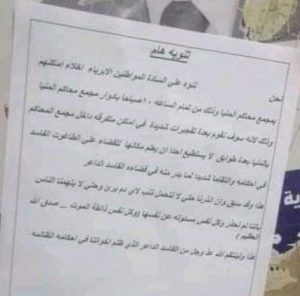 تنويه هام
ننوه على السادة المواطنين الابرياء اخلاء اماكنهم
نحن
بمجمع محاكم المنيا وذلك من تمام الساعه ١٠ صباحا بادوار مجمع محاكم المنيا
وذلك لانه سوف نقوم بعدة تفجيرات شديدة في اماكن متفرقه داخل مجمع المحاكم
بالمنيا بعدة طوابق لا يستطيع احدا ان يعلم مكانها للقضاء على الطاغوت الفاسد
في احكامه وانتقاما شديدا لما يدر منه في قضاءه الفاسد الداعر
هذا وقد سبق وان انذرنا حتى لا نتحمل ذنب لاي دم برئ وحتى لا يتهمنا الناس
باننا لم نحذر وكل نفس مسئوله عن نفسها (وكل نفس ذائقة الموت ... صدق الله
العظيم )
هذا وليتقم الله عز وجل من الفاسد الداعر الذي ظلم اخواتنا في احكامه الظالمه
ية